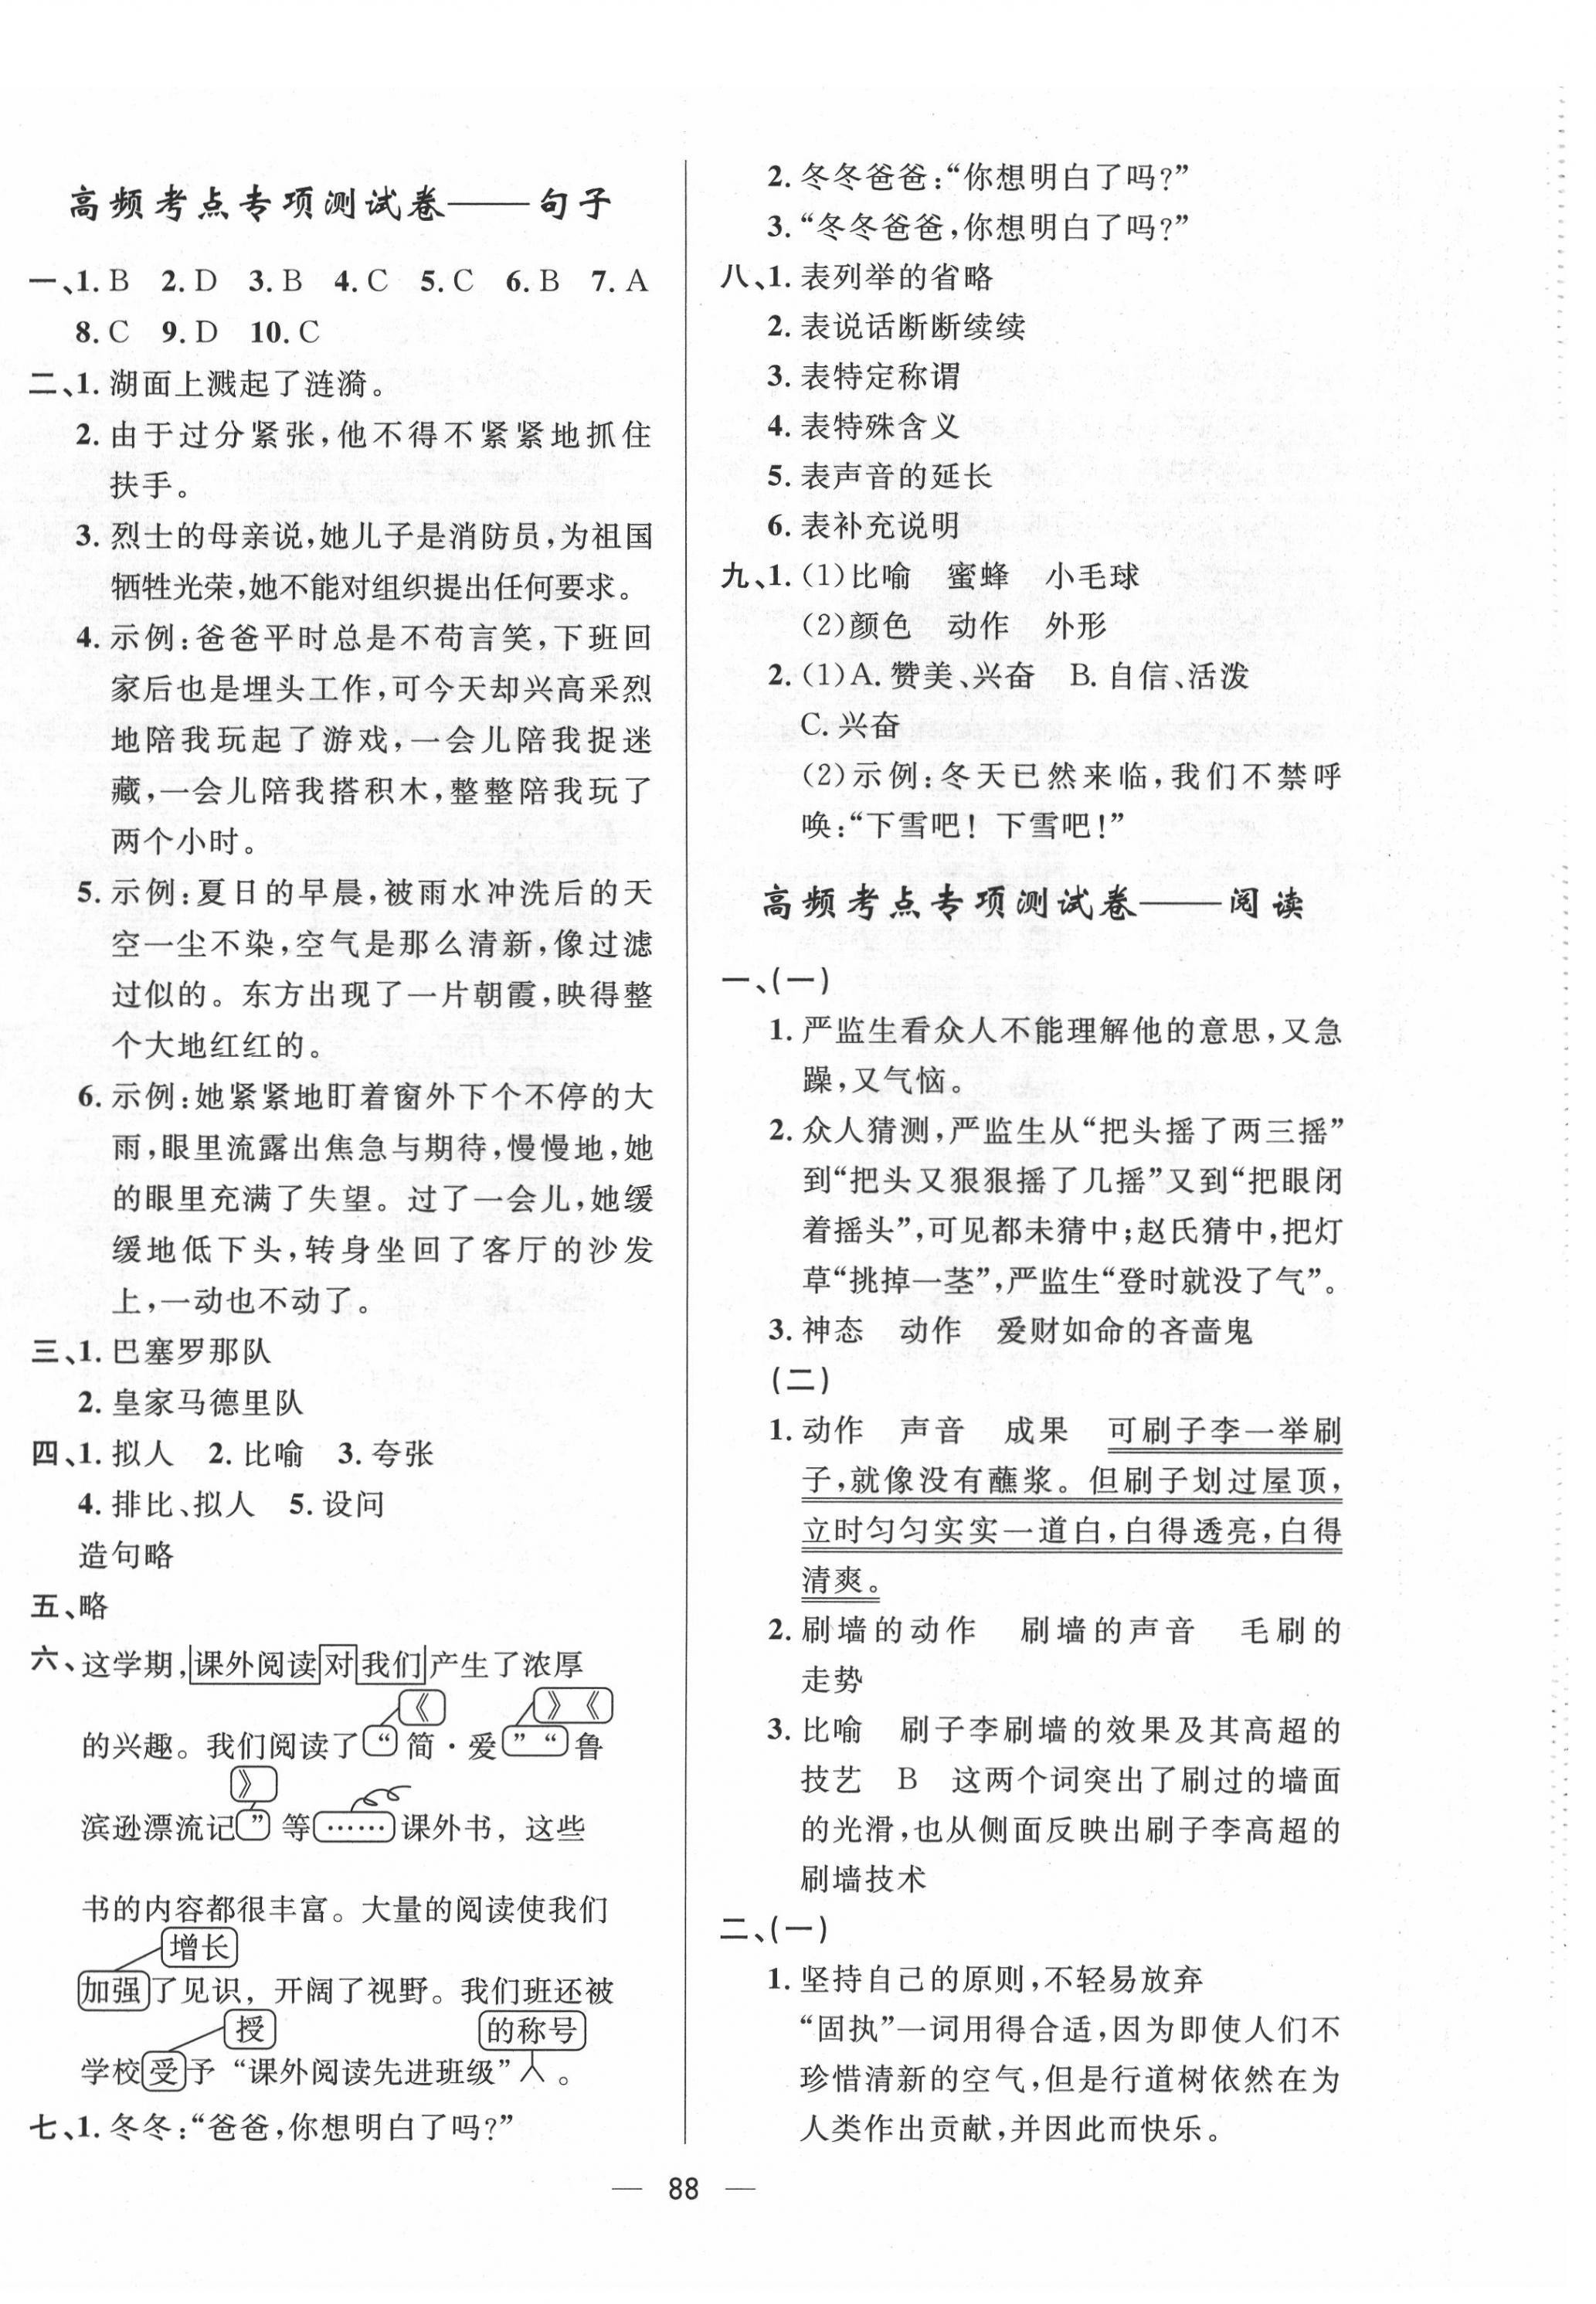 高频考点专项测试卷——句子
一、1. B 2. D 3. B 4. C 5. C 6. B 7. A
8. C 9. D 10. C
二、1. 湖面上溅起了涟漪。
2. 由于过分紧张，他不得不紧紧地抓住
扶手。
3. 烈士的母亲说，她儿子是消防员，为祖国
牺牲光荣，她不能对组织提出任何要求。
4. 示例：爸爸平时总是不苟言笑，下班回
家后也是埋头工作，可今天却兴高采烈
地陪我玩起了游戏，一会儿陪我捉迷
藏，一会儿陪我搭积木，整整陪我玩了
两个小时。
5. 示例：夏日的早晨，被雨水冲洗后的天
空一尘不染，空气是那么清新，像过滤
过似的。东方出现了一片朝霞，映得整
个大地红红的。
6. 示例：她紧紧地盯着窗外下个不停的大
雨，眼里流露出焦急与期待，慢慢地，她
的眼里充满了失望。过了一会儿，她缓
缓地低下头，转身坐回了客厅的沙发
上，一动也不动了。
三、1. 巴塞罗那队
2. 皇家马德里队
四、1. 拟人 2. 比喻 3. 夸张
4. 排比、拟人 5. 设问
造句略
五、略
六、这学期，课外阅读对我们产生了浓厚
《 》《
的兴趣。我们阅读了“简·爱”“鲁
》
滨逊漂流记”等……课外书，这些
书的内容都很丰富。大量的阅读使我们
增长
加强了见识，开阔了视野。我们班还被
授 的称号
学校受予“课外阅读先进班级”。
七、1. 冬冬：“爸爸，你想明白了吗？”
2. 冬冬爸爸：“你想明白了吗？”
3. “冬冬爸爸，你想明白了吗？”
八、1. 表列举的省略
2. 表说话断断续续
3. 表特定称谓
4. 表特殊含义
5. 表声音的延长
6. 表补充说明
九、1. （1）比喻 蜜蜂 小毛球
（2）颜色 动作 外形
2. （1）A. 赞美、兴奋 B. 自信、活泼
C. 兴奋
（2）示例：冬天已然来临，我们不禁呼
唤：“下雪吧！下雪吧！”
高频考点专项测试卷——阅读
一、（一）
1. 严监生看众人不能理解他的意思，又急
躁，又气恼。
2. 众人猜测，严监生从“把头摇了两三摇”
到“把头又狠狠摇了几摇”又到“把眼闭
着摇头”，可见都未猜中；赵氏猜中，把灯
草“挑掉一茎”，严监生“登时就没了气”。
3. 神态 动作 爱财如命的吝啬鬼
（二）
1. 动作 声音 成果 可刷子李一举刷
子，就像没有蘸浆。但刷子划过屋顶，
立时匀匀实实一道白，白得透亮，白得
清爽。
2. 刷墙的动作 刷墙的声音 毛刷的
走势
3. 比喻 刷子李刷墙的效果及其高超的
技艺 B 这两个词突出了刷过的墙面
的光滑，也从侧面反映出刷子李高超的
刷墙技术
二、（一）
1. 坚持自己的原则，不轻易放弃
“固执”一词用得合适，因为即使人们不
珍惜清新的空气，但是行道树依然在为
人类作出贡献，并因此而快乐。
— 88 —